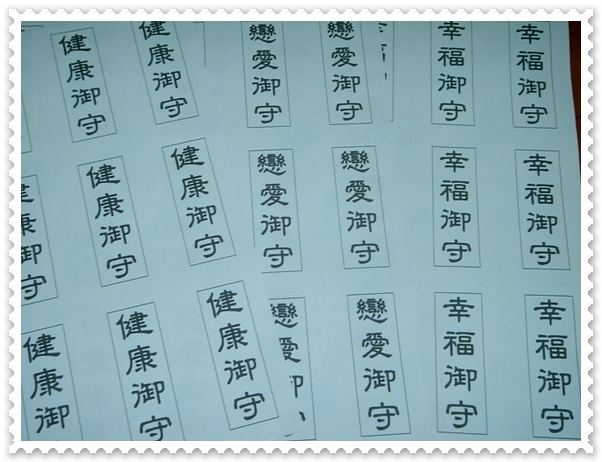 健康御守
健康御守
戀愛御守
戀愛御守
幸福御守
幸福御守
康御守
健康御守
健康御守
戀愛御守
戀愛御守
幸福御守
幸福御守
健康御
健康御守
健康御守
戀愛
戀愛御守
幸福御守
幸福御守